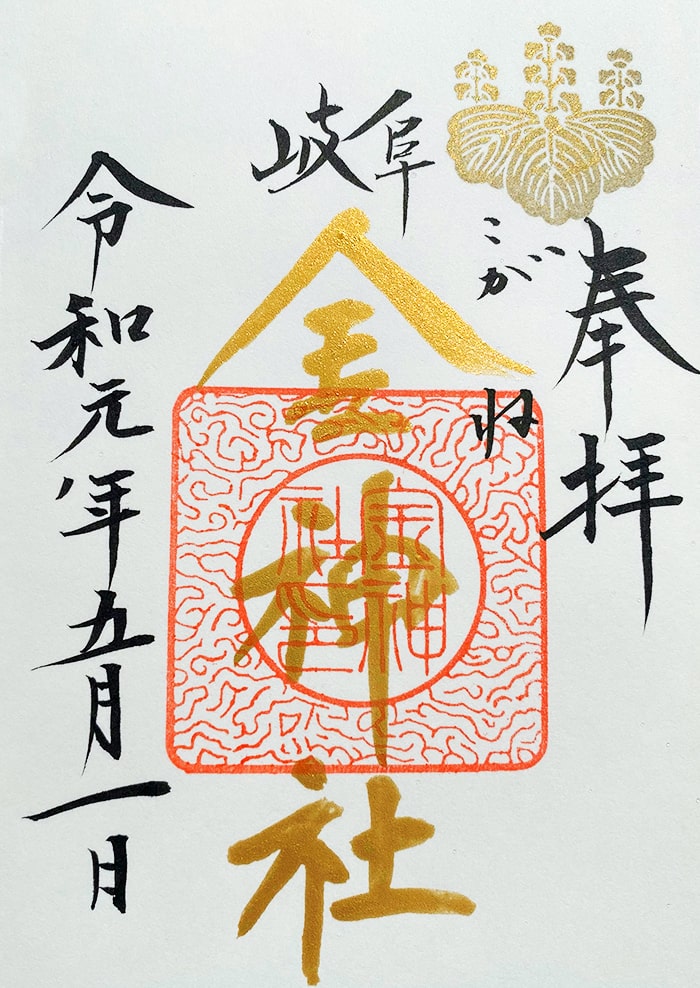 奉拝
岐阜
こがね
金神社
金神社印
令和元年五月一日